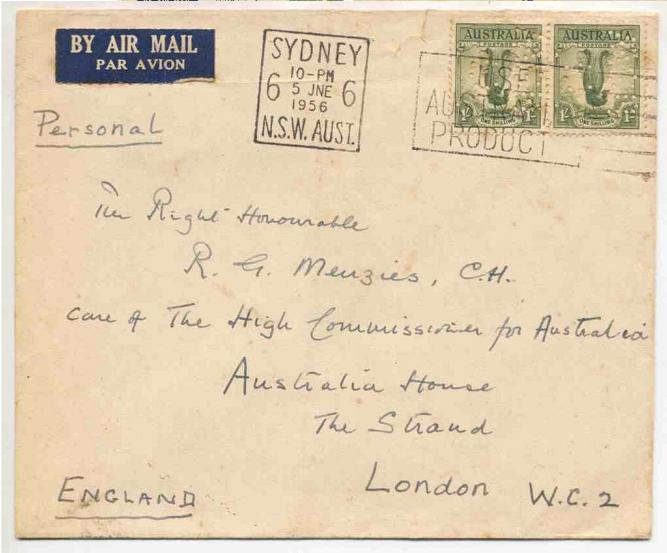 BY AIR MAIL
PAR AVION
SYDNEY
10-PM
6 5 JNE 6
1956
N.S.W. AUST.
AUSTRALIA AUSTRALIA
POSTAGE POSTAGE
1/- 1/- 1/- 1/-
ONE SHILLING ONE SHILLING
USE
PRODUCT
Personal
The Right Honourable
R. G. Menzies, C.H.
care of The High Commissioner for Australia
Australia House
The Strand
London W.C. 2
ENGLAND